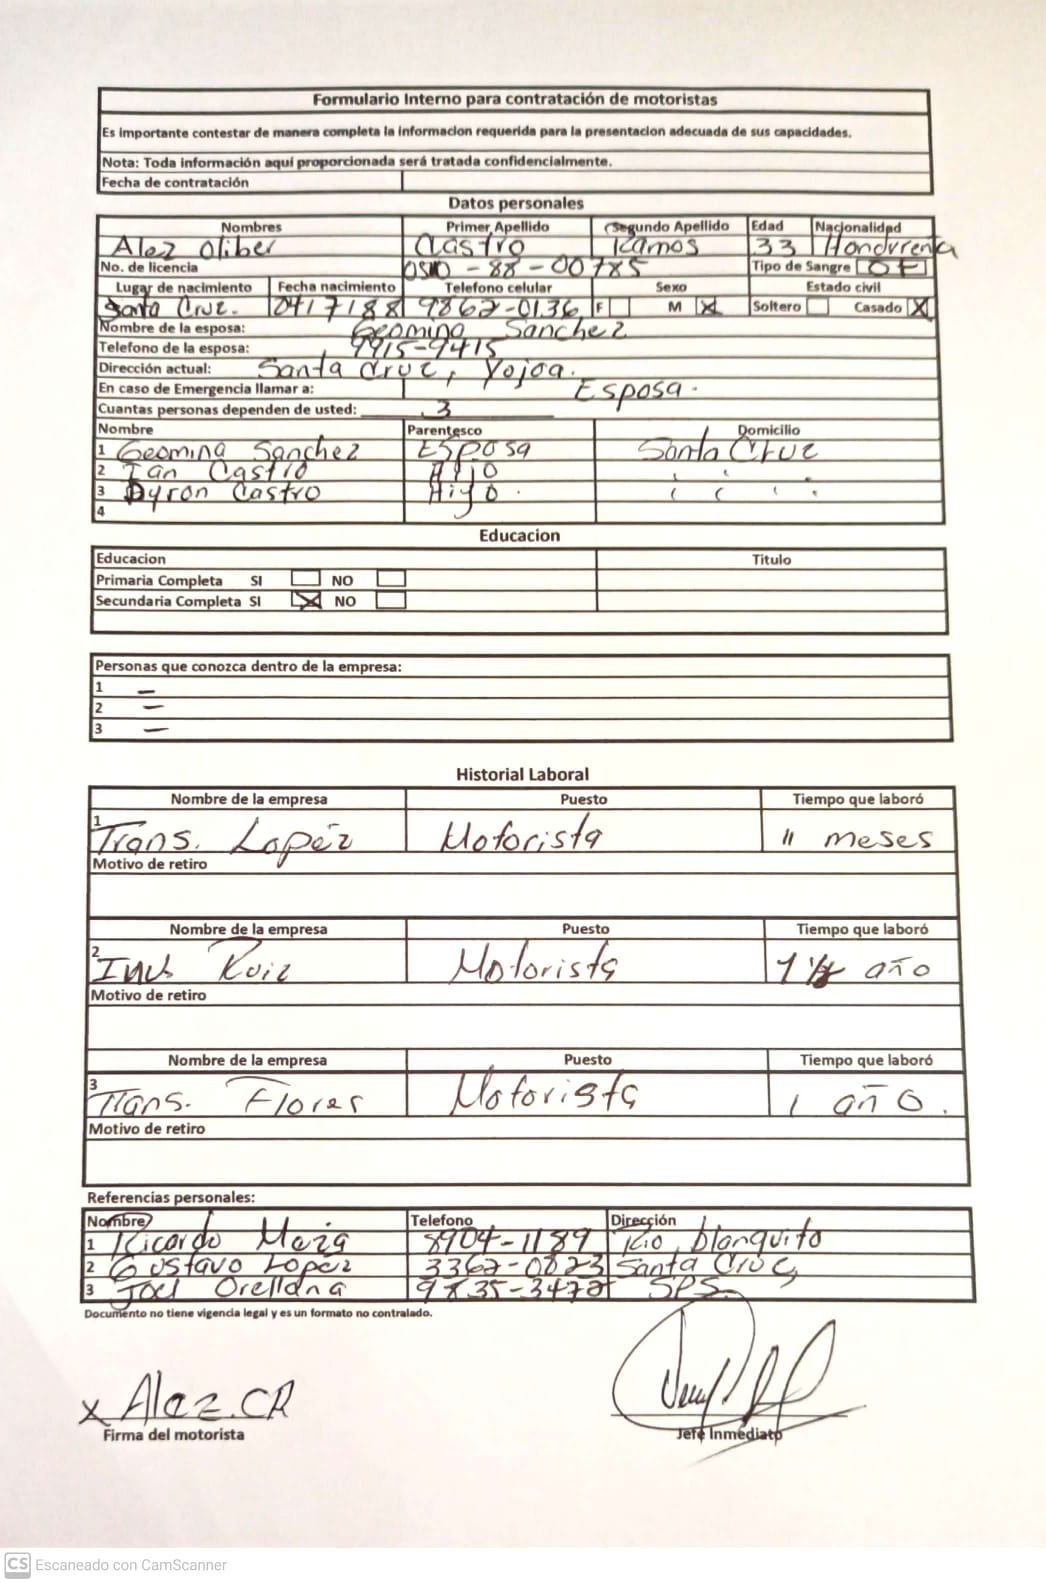 Formulario Interno para contratación de motoristas
Es importante contestar de manera completa la informacion requerida para la presentacion adecuada de sus capacidades.
Nota: Toda información aquí proporcionada será tratada confidencialmente.
Fecha de contratación
Datos personales
Nombres Primer Apellido Segundo Apellido Edad Nacionalidad
Alez Oliber Castro Ramos 33 Hondureña
No. de licencia -88-00785 Tipo de Sangre O+
Lugar de nacimiento Fecha nacimiento Telefono celular Sexo Estado civil
Santa Cruz. 0417188 9862-0136 F M X Soltero Casado X
Nombre de la esposa: Geomina Sanchez
Telefono de la esposa: 9915-9415
Dirección actual: Santa Cruz, Yojoa.
En caso de Emergencia llamar a: Esposa.
Cuantas personas dependen de usted: 3
Nombre Parentesco Domicilio
1 Geomina Sanchez Esposa Santa Cruz
2 Ian Castro Hijo
3 Byron Castro Hijo.
4
Educacion
Educacion Titulo
Primaria Completa SI NO
Secundaria Completa SI X NO
Personas que conozca dentro de la empresa:
1 —
2 —
3 —
Historial Laboral
Nombre de la empresa Puesto Tiempo que laboró
1 Trans. Lopéz Motorista 11 meses
Motivo de retiro
Nombre de la empresa Puesto Tiempo que laboró
2 Ruiz Motorista 1 año
Motivo de retiro
Nombre de la empresa Puesto Tiempo que laboró
3 Trans. Flores Motorista 1 año.
Motivo de retiro
Referencias personales:
Nombre Telefono Dirección
1 Ricardo Mejia 8904-1189 Rio blanquito
2 Gustavo Lopez 3362-0823 Santa Cruz,
3 Joel Orellana 9835-3472 SPS.
Documento no tiene vigencia legal y es un formato no contralado.
x Alez.CR
Firma del motorista Jefe Inmediato
CS Escaneado con CamScanner